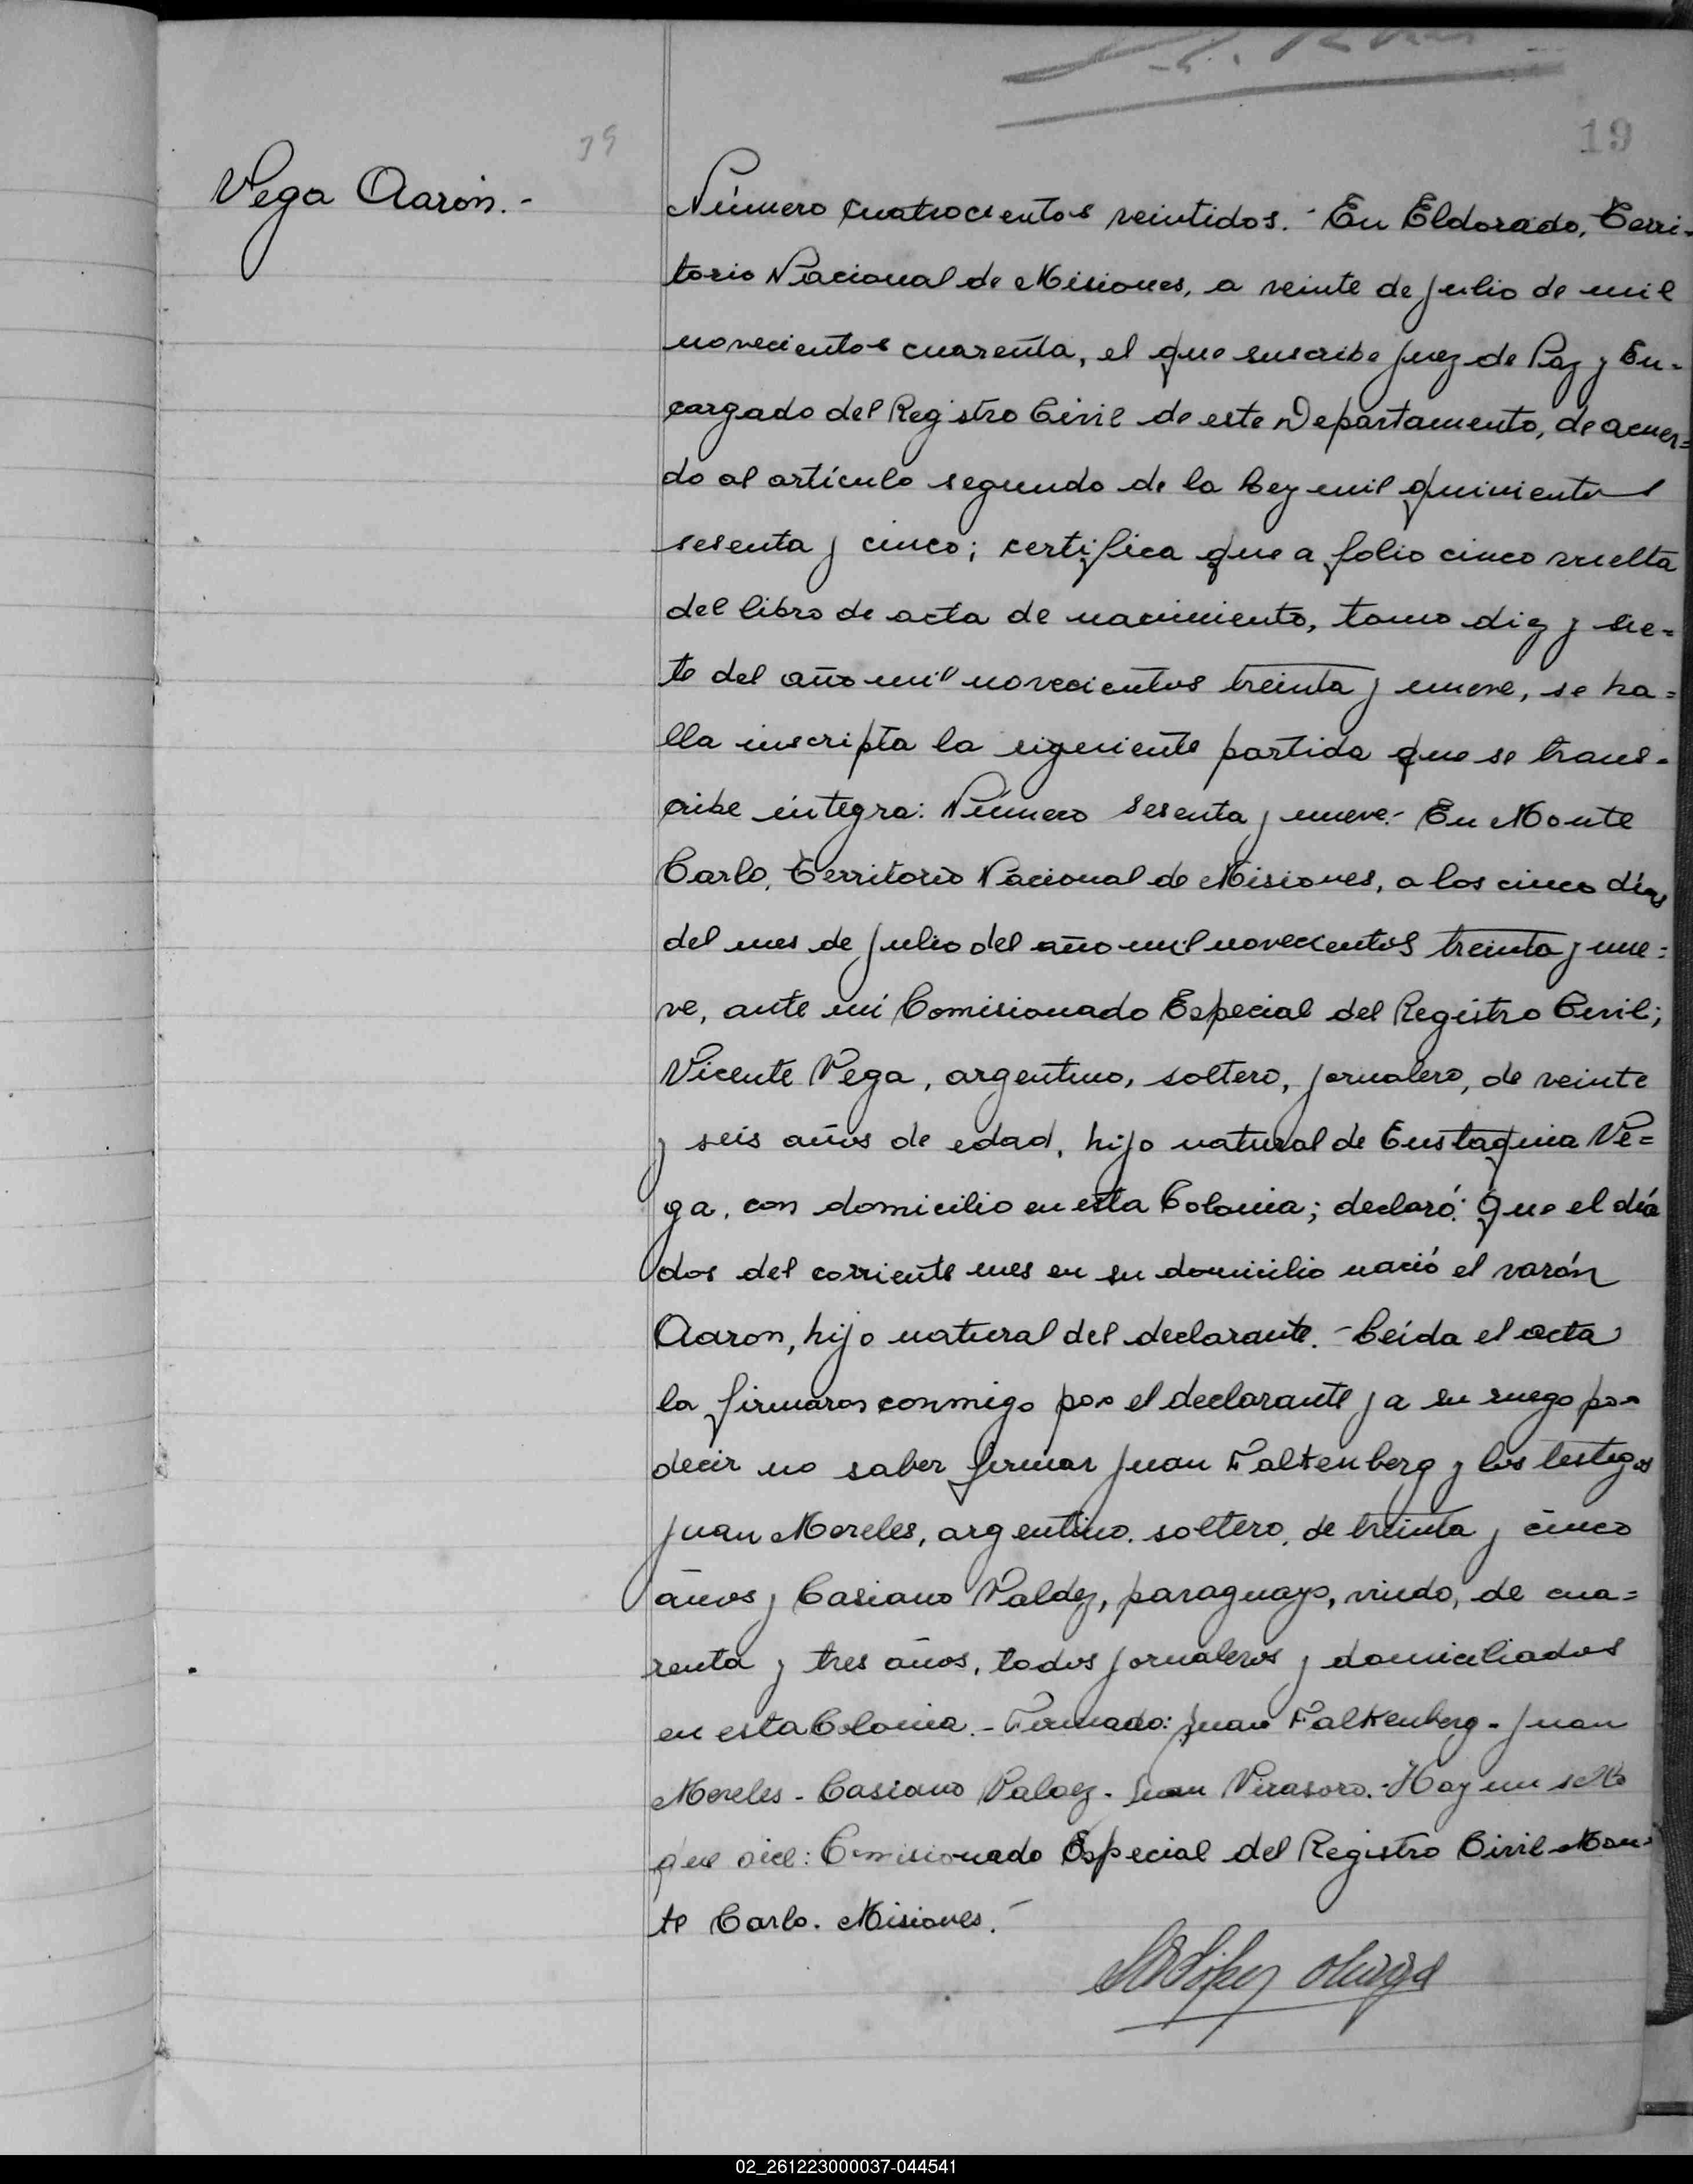 19
39
Vega Aarón.-
Número cuatrocientos veintidos.- En Eldorado, Terri-
torio Nacional de Misiones, a veinte de julio de mil
novecientos cuarenta, el que suscribe Juez de Paz y En-
cargado del Registro Civil de este Departamento, de acuer=
do al artículo segundo de la Ley mil quinientos
sesenta y cinco; certifica que a folio cinco vuelta
del libro de acta de nacimiento, tomo diez y sie=
te del año mil novecientos treinta y nueve, se ha=
lla inscripta la siguiente partida que se trans-
cribe íntegra: Número sesenta y nueve.- En Monte
Carlo, Territorio Nacional de Misiones, a los cinco días
del mes de julio del año mil novecientos treinta y nue=
ve, ante mí Comisionado Especial del Registro Civil;
Vicente Vega, argentino, soltero, jornalero, de veinte
y seis años de edad, hijo natural de Eustaquia Ve=
ga, con domicilio en esta Colonia; declaró: Que el día
dos del corriente mes en su domicilio nació el varón
Aaron, hijo natural del declarante.- Leída el acta
la firmaron conmigo por el declarante y a su ruego por
decir no saber firmar Juan Falkenberg y los testigos
Juan Moreles, argentino, soltero, de treinta y cinco
años y Casiano Valdez, paraguayo, viudo, de cua=
renta y tres años, todos jornaleros y domiciliados
en esta Colonia.- Firmado: Juan Falkenberg - Juan
Moreles - Casiano Valdez - Juan Virasoro.- Hay un sello
que dice: Comisionado Especial del Registro Civil Mon-
te Carlo. Misiones.-
02_261223000037-044541